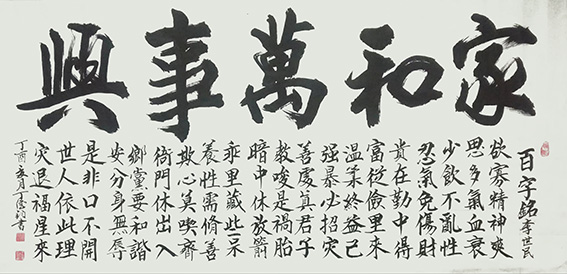 家和萬事興
百字銘 李世民
欲寡精神爽
思多氣血衰
少飲不亂性
忍氣免傷財
貴在勤中得
富從儉里來
溫柔終益己
强暴必招災
善處真君子
教唆是禍胎
暗中休放箭
乖里藏些呆
養性需修善
欺心莫喫齊
衙門休出入
鄉黨要和諧
安分身無辱
是非口不開
世人依此理
災退福星來
丁酉 月 書